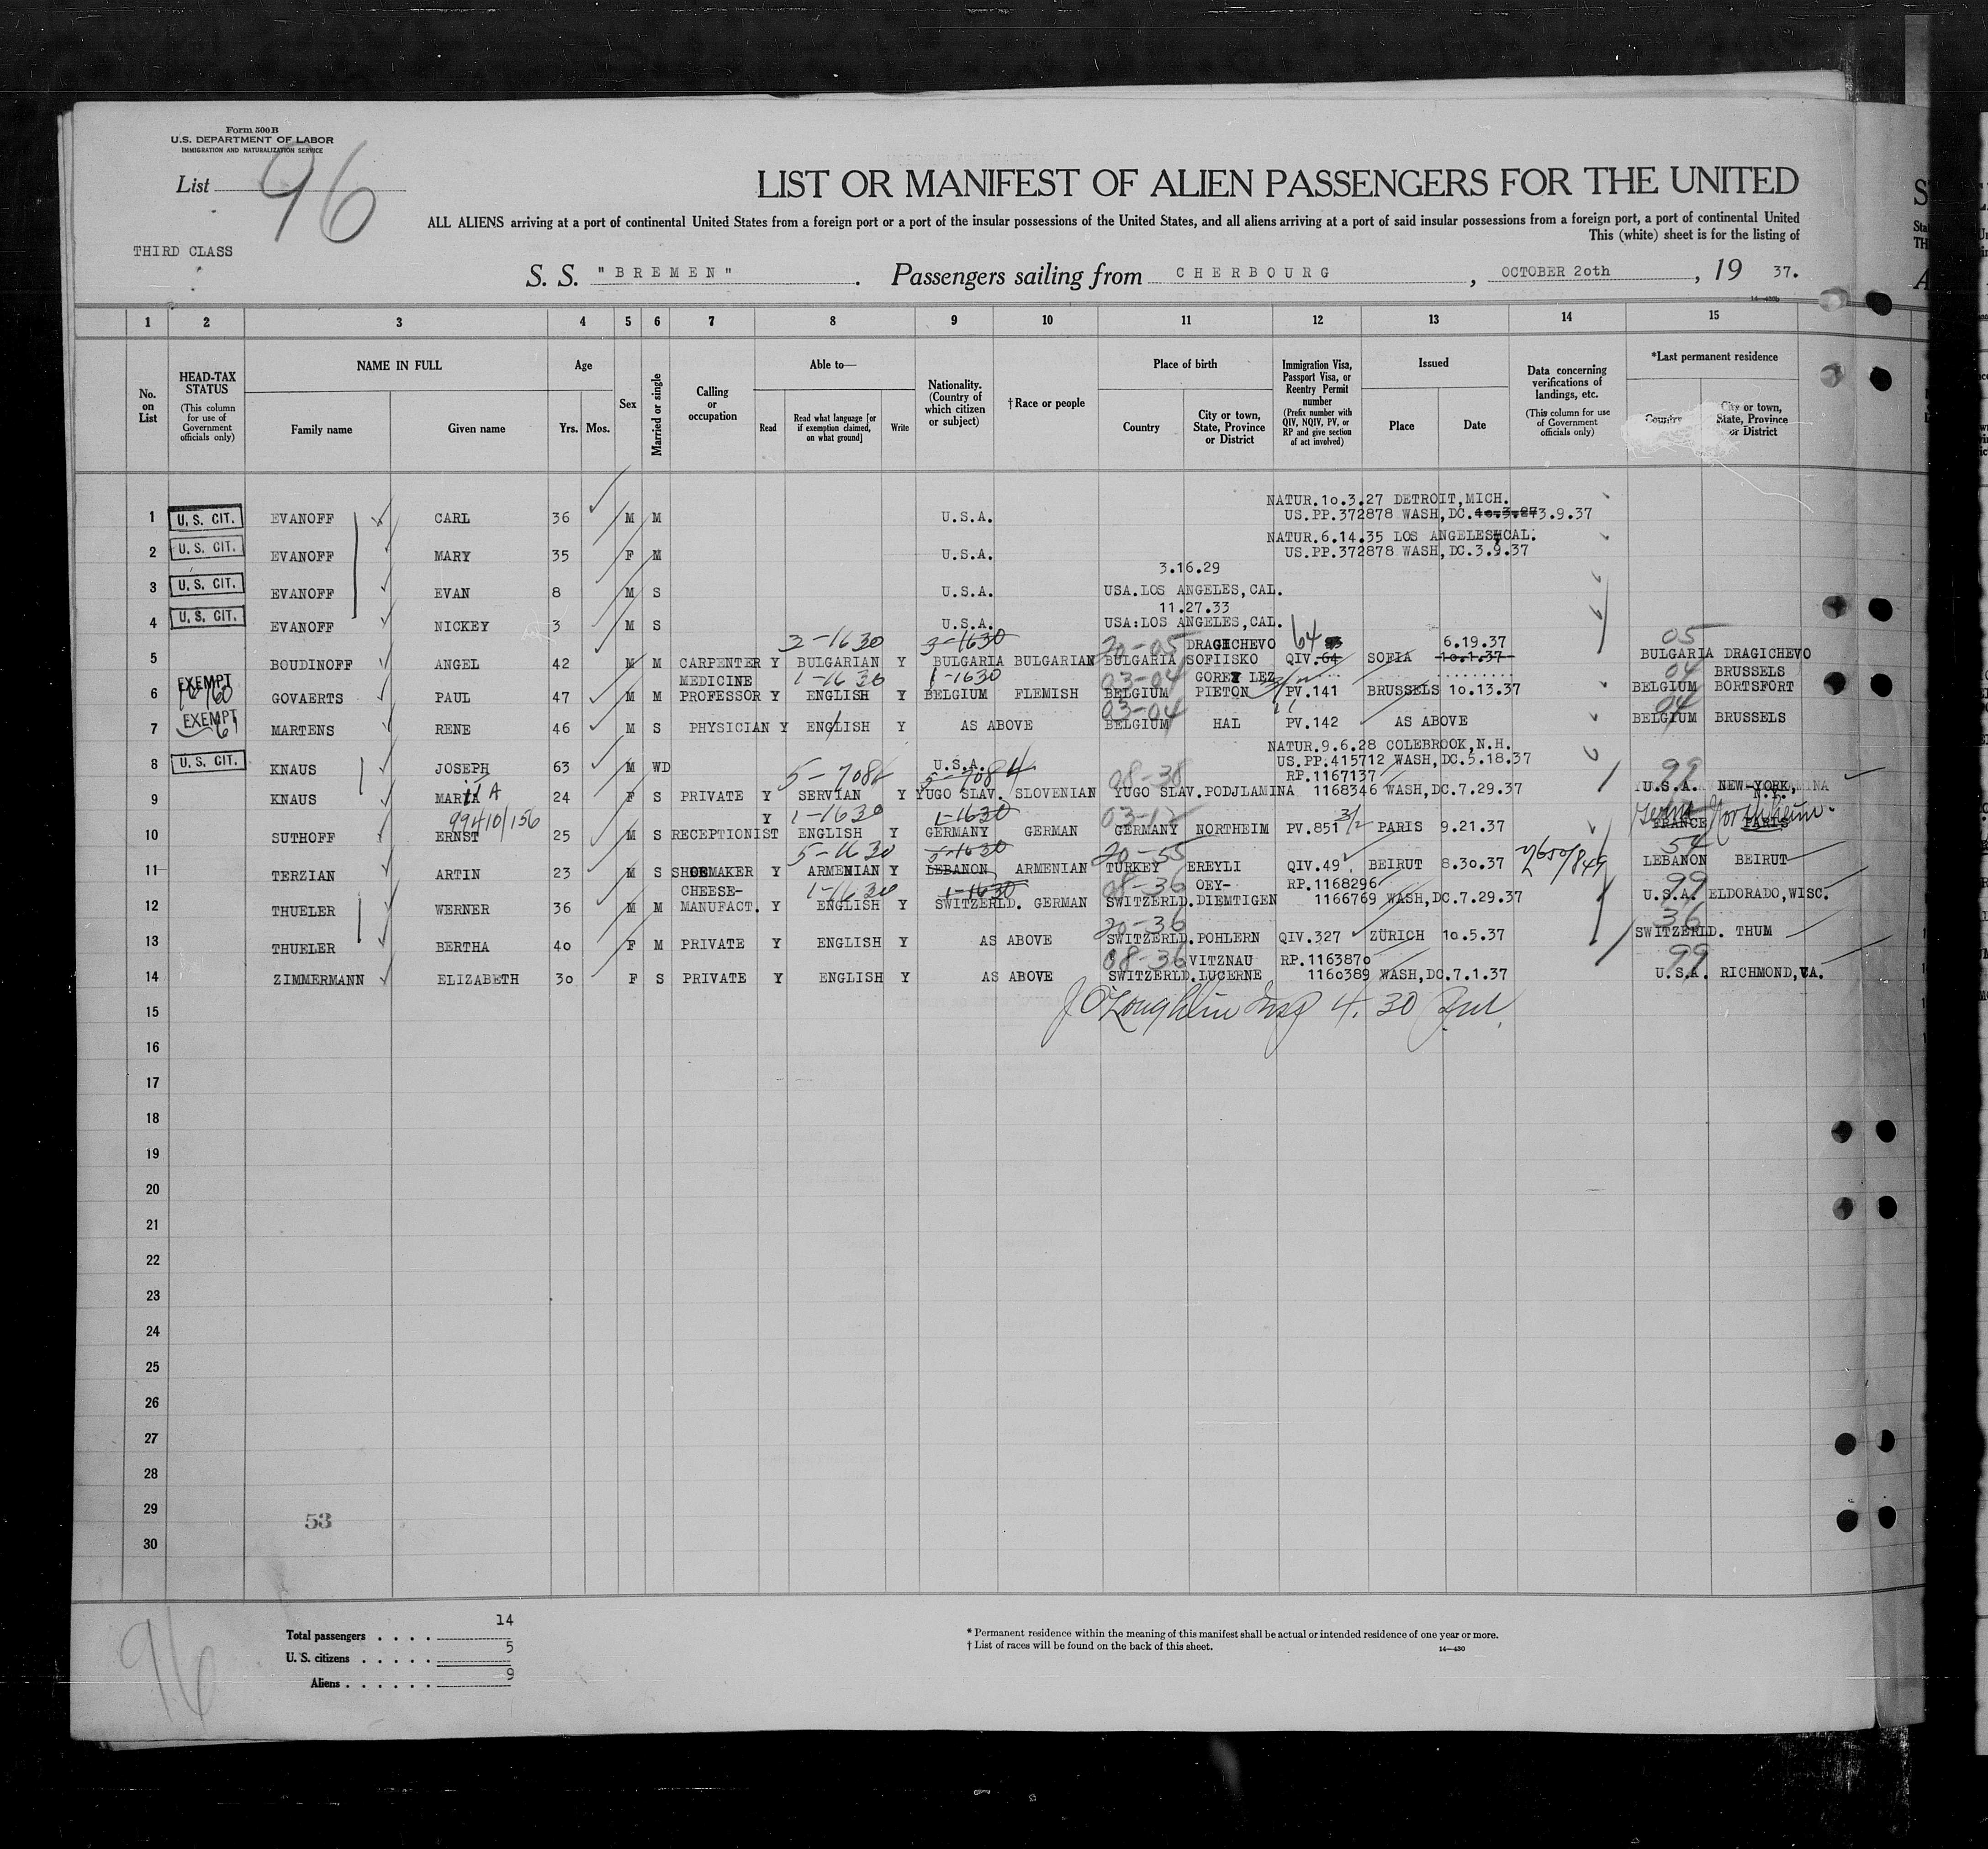 Form 500B
U.S. DEPARTMENT OF LABOR
IMMIGRATION AND NATURALIZATION SERVICE
List 96
LIST OR MANIFEST OF ALIEN PASSENGERS FOR THE UNITED
ALL ALIENS arriving at a port of continental United States from a foreign port or a port of the insular possessions of the United States, and all aliens arriving at a port of said insular possessions from a foreign port, a port of continental United
This (white) sheet is for the listing of
THIRD CLASS
S. S. "BREMEN". Passengers sailing from CHERBOURG, OCTOBER 2oth, 19 37.
14—430b
1 2 3 4 5 6 7 8 9 10 11 12 13 14 15
No. on List
HEAD-TAX STATUS (This column for use of Government officials only)
NAME IN FULL
Family name Given name
Age
Yrs. Mos.
Sex
Married or single
Calling or occupation
Able to—
Read Read what language [or if exemption claimed, on what ground] Write
Nationality. (Country of which citizen or subject)
†Race or people
Place of birth
Country City or town, State, Province or District
Immigration Visa, Passport Visa, or Reentry Permit number (Prefix number with QIV, NQIV, PV, or RP and give section of act involved)
Issued
Place Date
Data concerning verifications of landings, etc. (This column for use of Government officials only)
*Last permanent residence
Country City or town, State, Province or District
NATUR.1o.3.27 DETROIT,MICH.
1 U.S. CIT. EVANOFF CARL 36 M M U.S.A. US.PP.372878 WASH,DC.1o.3.27 3.9.37
NATUR.6.14.35 LOS ANGELES CAL.
2 U.S. CIT. EVANOFF MARY 35 F M U.S.A. US.PP.372878 WASH,DC.3.9.37
3.16.29
3 U.S. CIT. EVANOFF EVAN 8 M S U.S.A. USA.LOS ANGELES,CAL.
11.27.33
4 U.S. CIT. EVANOFF NICKEY 3 M S U.S.A. USA:LOS ANGELES,CAL.
2-1630 3-1630 20-05 DRAGICHEVO 64 6.19.37 05
5 BOUDINOFF ANGEL 42 M M CARPENTER Y BULGARIAN Y BULGARIA BULGARIAN BULGARIA SOFIISKO QIV.64 SOFIA 1o.1.37 BULGARIA DRAGICHEVO
EXEMPT MEDICINE 1-1630 1-1630 03-04 GOREY LEZ 04 BRUSSELS
6 GOVAERTS PAUL 47 M M PROFESSOR Y ENGLISH Y BELGIUM FLEMISH BELGIUM PIETON PV.141 BRUSSELS 1o.13.37 BELGIUM BORTSFORT
EXEMPT 03-04 04
7 MARTENS RENE 46 M S PHYSICIAN Y ENGLISH Y AS ABOVE BELGIUM HAL PV.142 AS ABOVE BELGIUM BRUSSELS
NATUR.9.6.28 COLEBROOK,N.H.
8 U.S. CIT. KNAUS JOSEPH 63 M WD U.S.A. US.PP.415712 WASH,DC.5.18.37
5-7084 5-7084 08-38 RP.1167137 99
9 KNAUS MARIA 24 F S PRIVATE Y SERVIAN Y YUGO SLAV. SLOVENIAN YUGO SLAV.PODJLAMINA 1168346 WASH,DC.7.29.37 U.S.A. NEW-YORK, N.Y.
99410/156 1-1630 1-1630 03-12 3/2 Northeim
10 SUTHOFF ERNST 25 M S RECEPTIONIST Y ENGLISH Y GERMANY GERMAN GERMANY NORTHEIM PV.851 PARIS 9.21.37 FRANCE PARIS
5-1630 5-1630 20-55 54
11 TERZIAN ARTIN 23 M S SHOEMAKER Y ARMENIAN Y LEBANON ARMENIAN TURKEY EREYLI QIV.49 BEIRUT 8.30.37 LEBANON BEIRUT
CHEESE- 1-1630 1-1630 08-36 OEY- RP.1168296 99
12 THUELER WERNER 36 M M MANUFACT. Y ENGLISH Y SWITZERLD. GERMAN SWITZERLD.DIEMTIGEN 1166769 WASH,DC.7.29.37 U.S.A. ELDORADO,WISC.
20-36 36
13 THUELER BERTHA 4o F M PRIVATE Y ENGLISH Y AS ABOVE SWITZERLD.POHLERN QIV.327 ZÜRICH 1o.5.37 SWITZERLD. THUM
08-36 VITZNAU RP.116387o 99
14 ZIMMERMANN ELIZABETH 3o F S PRIVATE Y ENGLISH Y AS ABOVE SWITZERLD.LUCERNE 116o389 WASH,DC.7.1.37 U.S.A. RICHMOND,VA.
15 J O'Loughlin Insp 4.30 Pm
16
17
18
19
20
21
22
23
24
25
26
27
28
29
53
30
96
Total passengers . . . . 14
U. S. citizens . . . . . 5
Aliens . . . . . . 9
* Permanent residence within the meaning of this manifest shall be actual or intended residence of one year or more.
† List of races will be found on the back of this sheet. 14—430